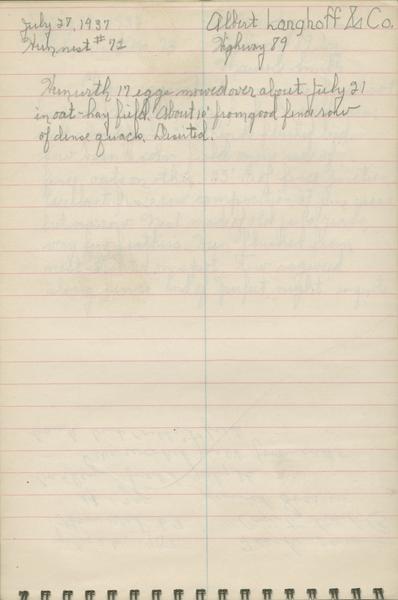 July 27, 1937 Albert Langhoff & Co.
Hun nest #71 Highway 89
Hun with 17 eggs mowed over about July 21
in oat-hay field. About 10' from good fence row
of dense quack. Deserted.